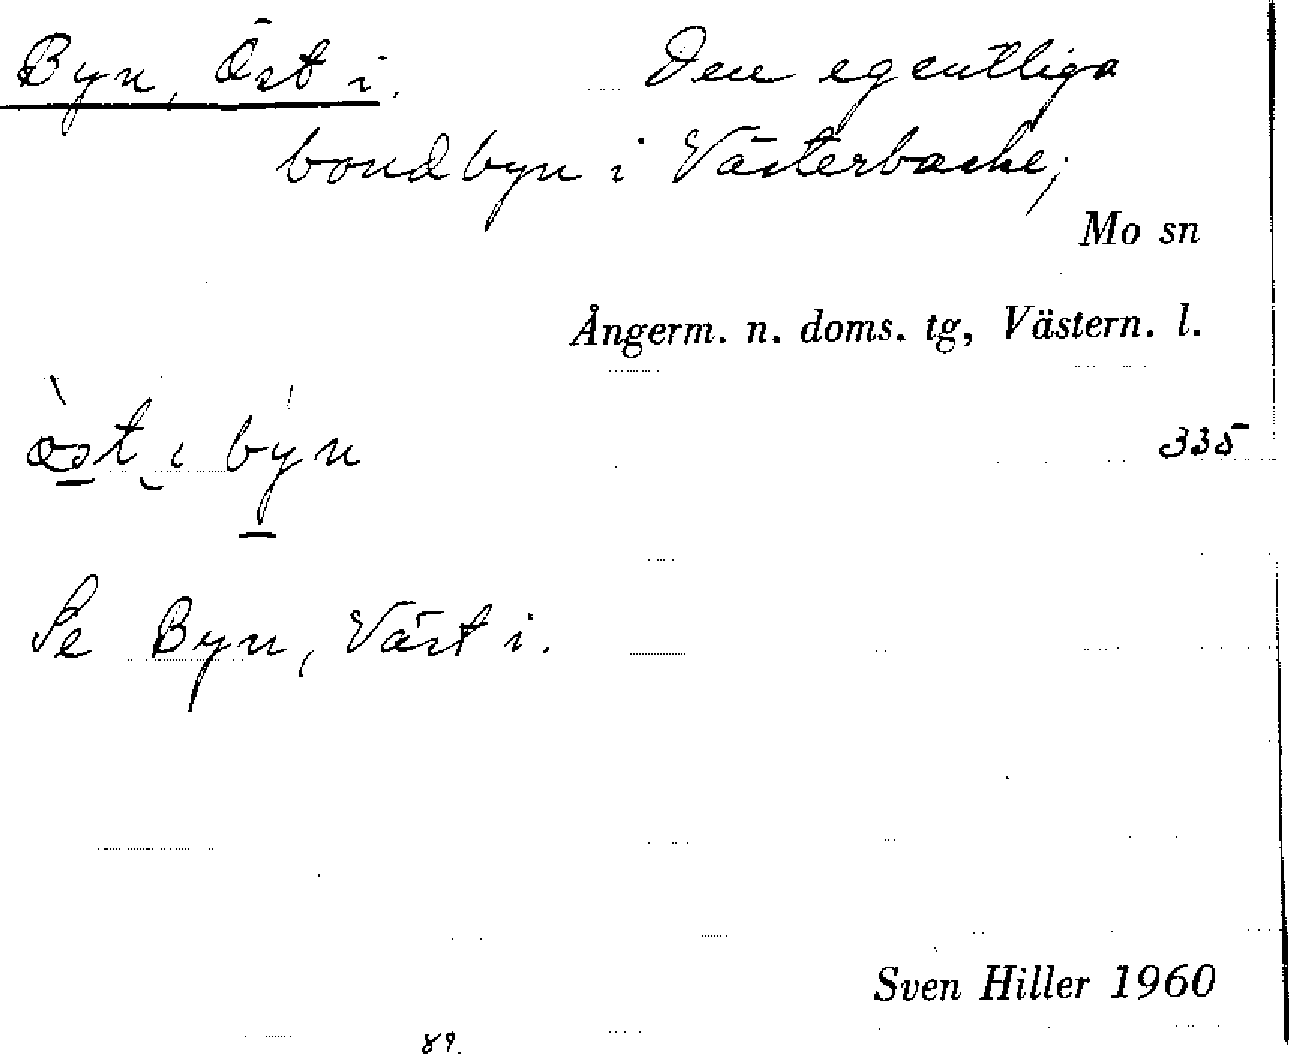 Byn, Öst i. Den egentliga
bondbyn i Västerbacke;
Mo sn
Ångerm. n. doms. tg, Västern. l.
335
öst i byn
Se Byn, Väst i.
Sven Hiller 1960
89.